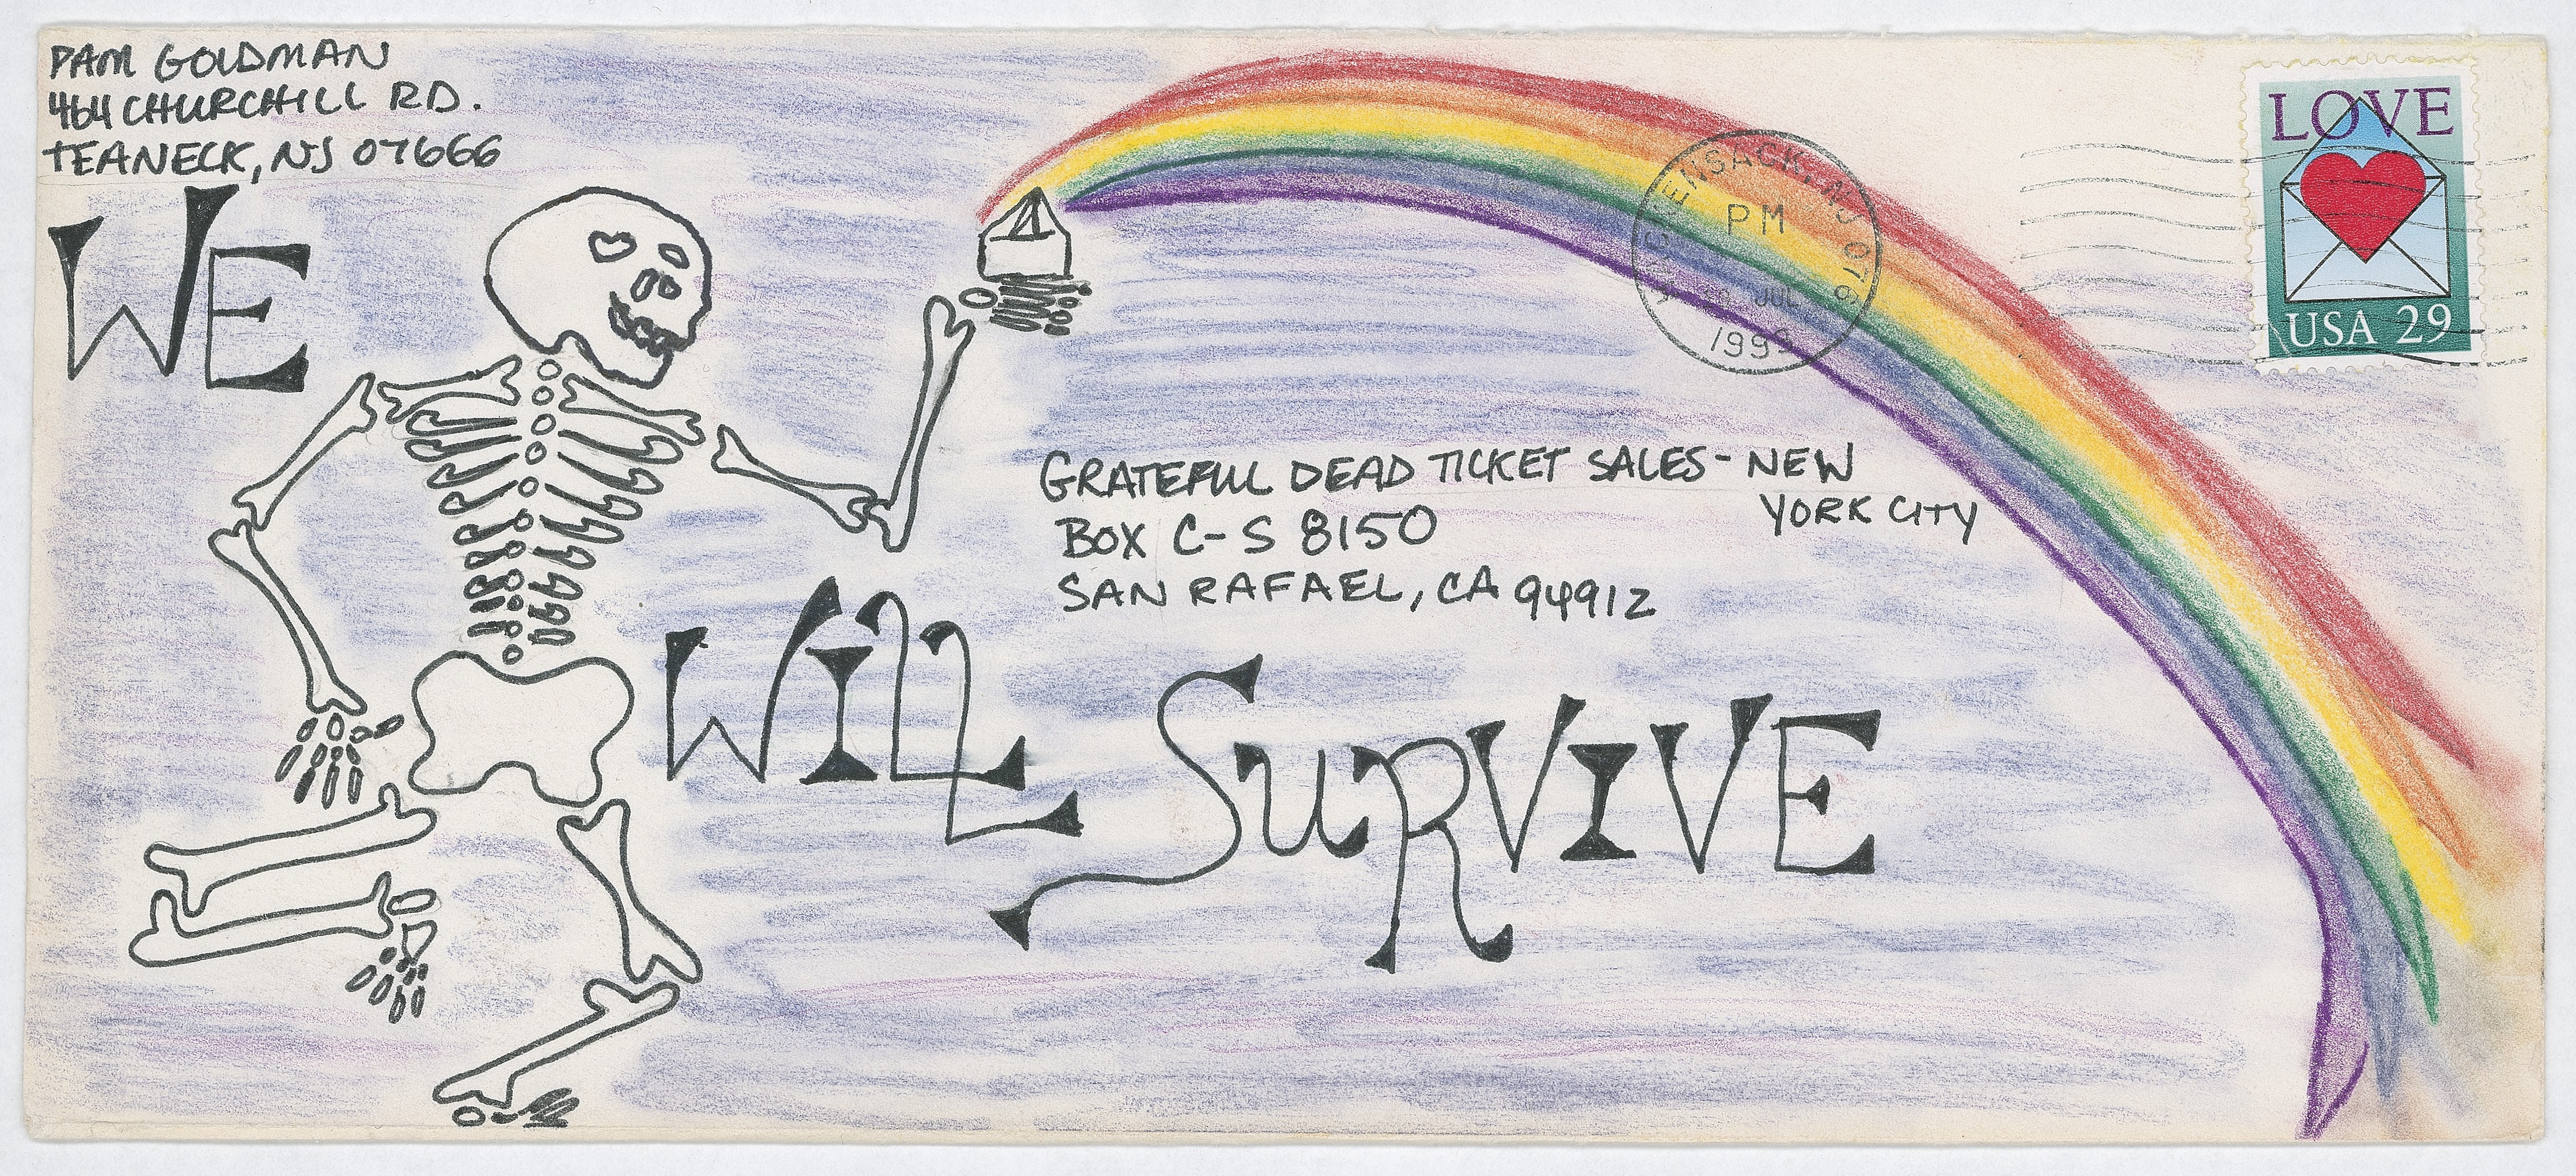 PAM GOLDMAN
464 CHURCHILL RD.
TEANECK, NJ 07666
LOVE
USA 29
HACKENSACK, NJ 076
PM
JUL
1993
WE
GRATEFUL DEAD TICKET SALES - NEW
YORK CITY
BOX C-S 8150
SAN RAFAEL, CA 94912
WILL
SURVIVE